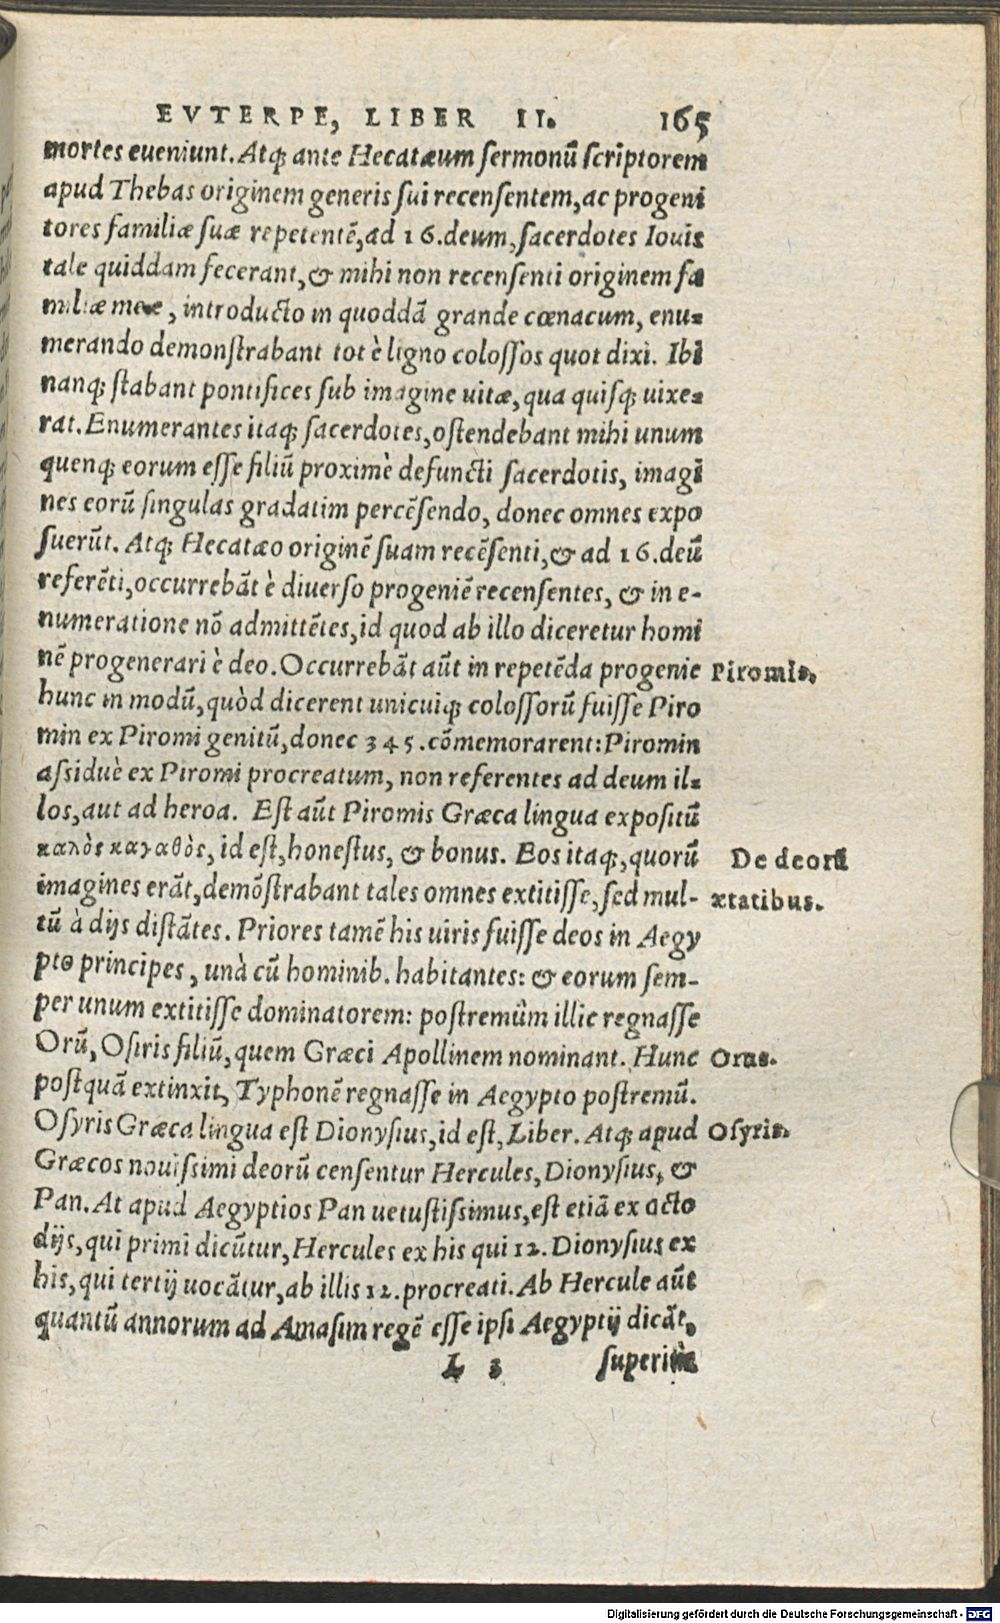 EVTERPE, LIBER II. 165
mortes eueniunt. Atq; ante Hecatæum sermonũ scriptorem
apud Thebas originem generis sui recensentem, ac progeni
tores familiæ suæ repetentẽ, ad 16. deum, sacerdotes Iouis
tale quiddam fecerant, & mihi non recensenti originem fa
miliæ meæ, introducto in quoddã grande cœnacum, enu-
merando demonstrabant tot è ligno colossos quot dixi. Ibi
nanq; stabant pontifices sub imagine uitæ, qua quisq; uixe-
rat. Enumerantes itaq; sacerdotes, ostendebant mihi unum
quenq; eorum esse filiũ proximè defuncti sacerdotis, imagi
nes eorũ singulas gradatim percẽsendo, donec omnes expo
suerũt. Atq; Hecatæo originẽ suam recẽsenti, & ad 16. deũ
referẽti, occurrebãt è diuerso progeniẽ recensentes, & in e-
numeratione nõ admittẽtes, id quod ab illo diceretur homi
nẽ progenerari è deo. Occurrebãt aũt in repetẽda progenie
Piromis.
hunc in modũ, quòd dicerent unicuiq; colossorũ fuisse Piro
min ex Piromi genitũ, donec 345. cõmemorarent: Piromin
assiduè ex Piromi procreatum, non referentes ad deum il-
los, aut ad heroa. Est aũt Piromis Græca lingua expositũ
καλὸς καγαθὸς, id est, honestus, & bonus. Eos itaq;, quorũ
De deorũ
imagines erãt, demõstrabant tales omnes extitisse, sed mul-
ætatibus.
tũ à dijs distãtes. Priores tamẽ his uiris fuisse deos in Aegy
pto principes, unà cũ hominib. habitantes: & eorum sem-
per unum extitisse dominatorem: postremùm illic regnasse
Orũ, Osiris filiũ, quem Græci Apollinem nominant. Hunc
Orus.
postquã extinxit, Typhonẽ regnasse in Aegypto postremũ.
Osyris Græca lingua est Dionysius, id est, Liber. Atq; apud
Osyris.
Græcos nouissimi deorũ censentur Hercules, Dionysius, &
Pan. At apud Aegyptios Pan uetustissimus, est etiã ex octo
dijs, qui primi dicũtur, Hercules ex his qui 12. Dionysius ex
his, qui tertij uocãtur, ab illis 12. procreati. Ab Hercule aũt
quantũ annorum ad Amasim regẽ esse ipsi Aegyptij dicãt,
L 3
Digitalisierung gefördert durch die Deutsche Forschungsgemeinschaft - DFG